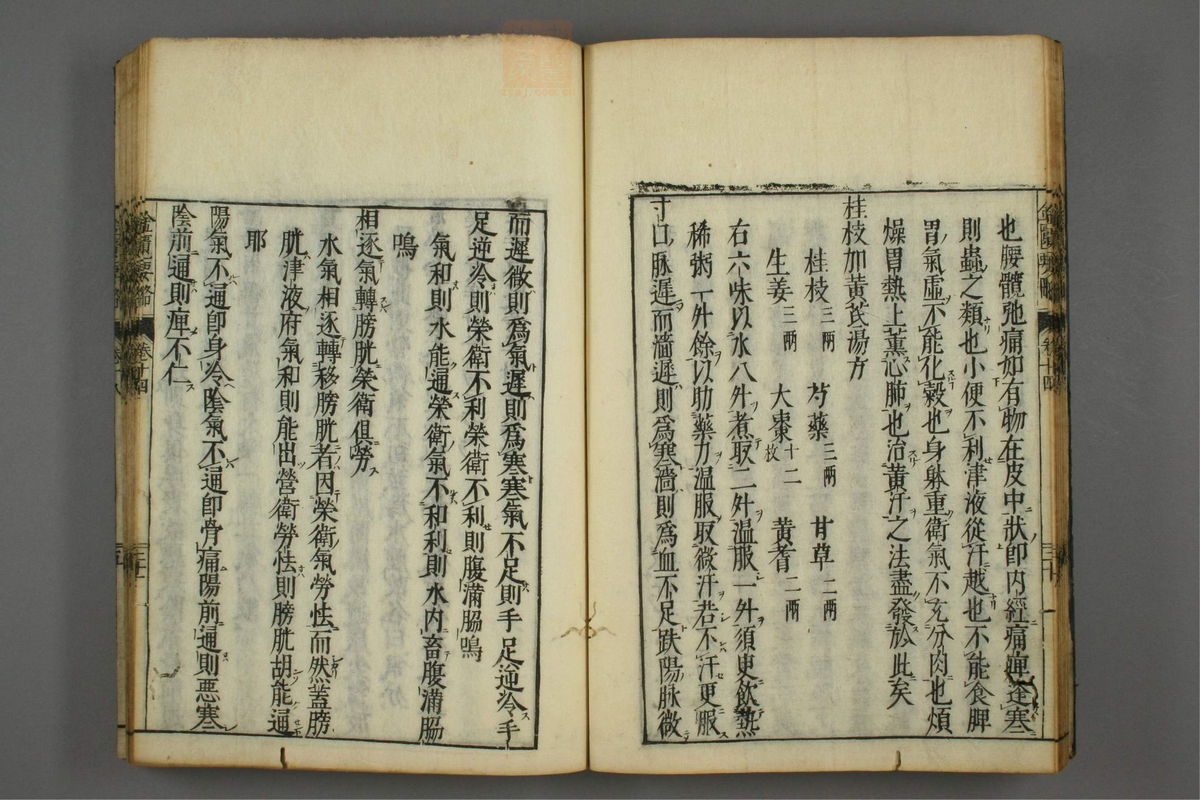 也腰髖弛痛如有物在皮中狀即內經痛痺逢寒
則蟲之類也小便不利津液從汗越也不能食脾
胃氣虛不能化穀也身躰重衛氣不充分肉也煩
燥胃熱上薰心肺也治黃汗之法盡發於此矣
桂枝加黃芪湯方
桂枝三兩 芍藥三兩 甘草二兩
生姜三兩 大棗十二枚 黃耆二兩
右六味以水八升煮取二升溫服一升須臾飲熱
稀粥一升餘以助藥力溫服取微汗若不汗更服
寸口脉遲而濇遲則爲寒濇則爲血不足趺陽脉微
而遲微則爲氣遲則爲寒寒氣不足則手足逆冷手
足逆冷則榮衛不利榮衛不利則腹滿脇鳴
氣和則水能通榮衛氣不和利則水內畜腹滿脇
鳴
相逐氣轉膀胱榮衛俱勞
水氣相逐轉移膀胱者因榮衛氣勞怯而然蓋膀
胱津液府氣和則能出營衛勞怯則膀胱胡能通
耶
陽氣不通即身冷陰氣不通即骨痛陽前通則惡寒
陰前通則痺不仁
金匱要略 卷十四